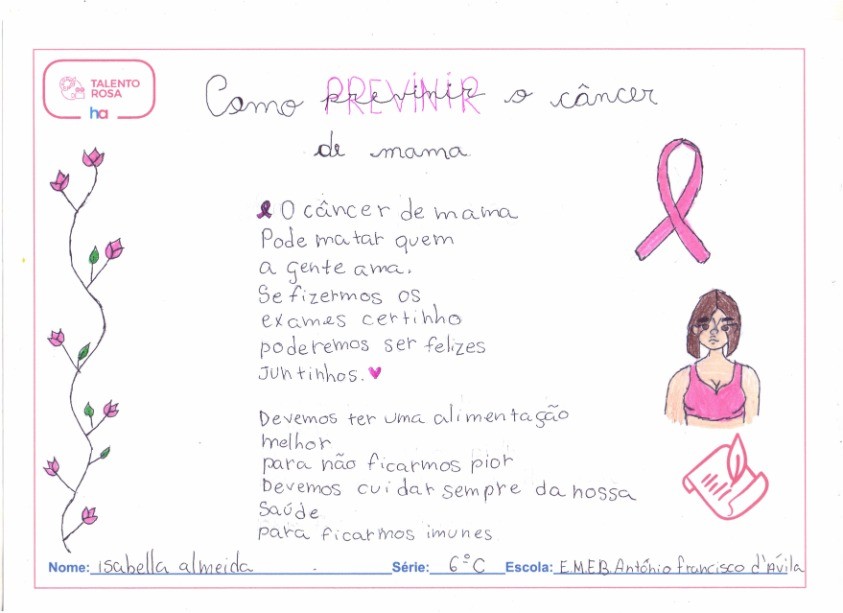 TALENTO
ROSA
ha
Como PREVINIR o câncer
de mama
O câncer de mama
Pode matar quem
a gente ama.
Se fizermos os
exames certinho
poderemos ser felizes
Juntinhos.
Devemos ter uma alimentação
melhor
para não ficarmos pior
Devemos cuidar sempre da nossa
Saúde
para ficarmos imunes
Nome: isabella almeida Série: 6°C Escola: E.M.E.B. Antônio francisco d'Ávila